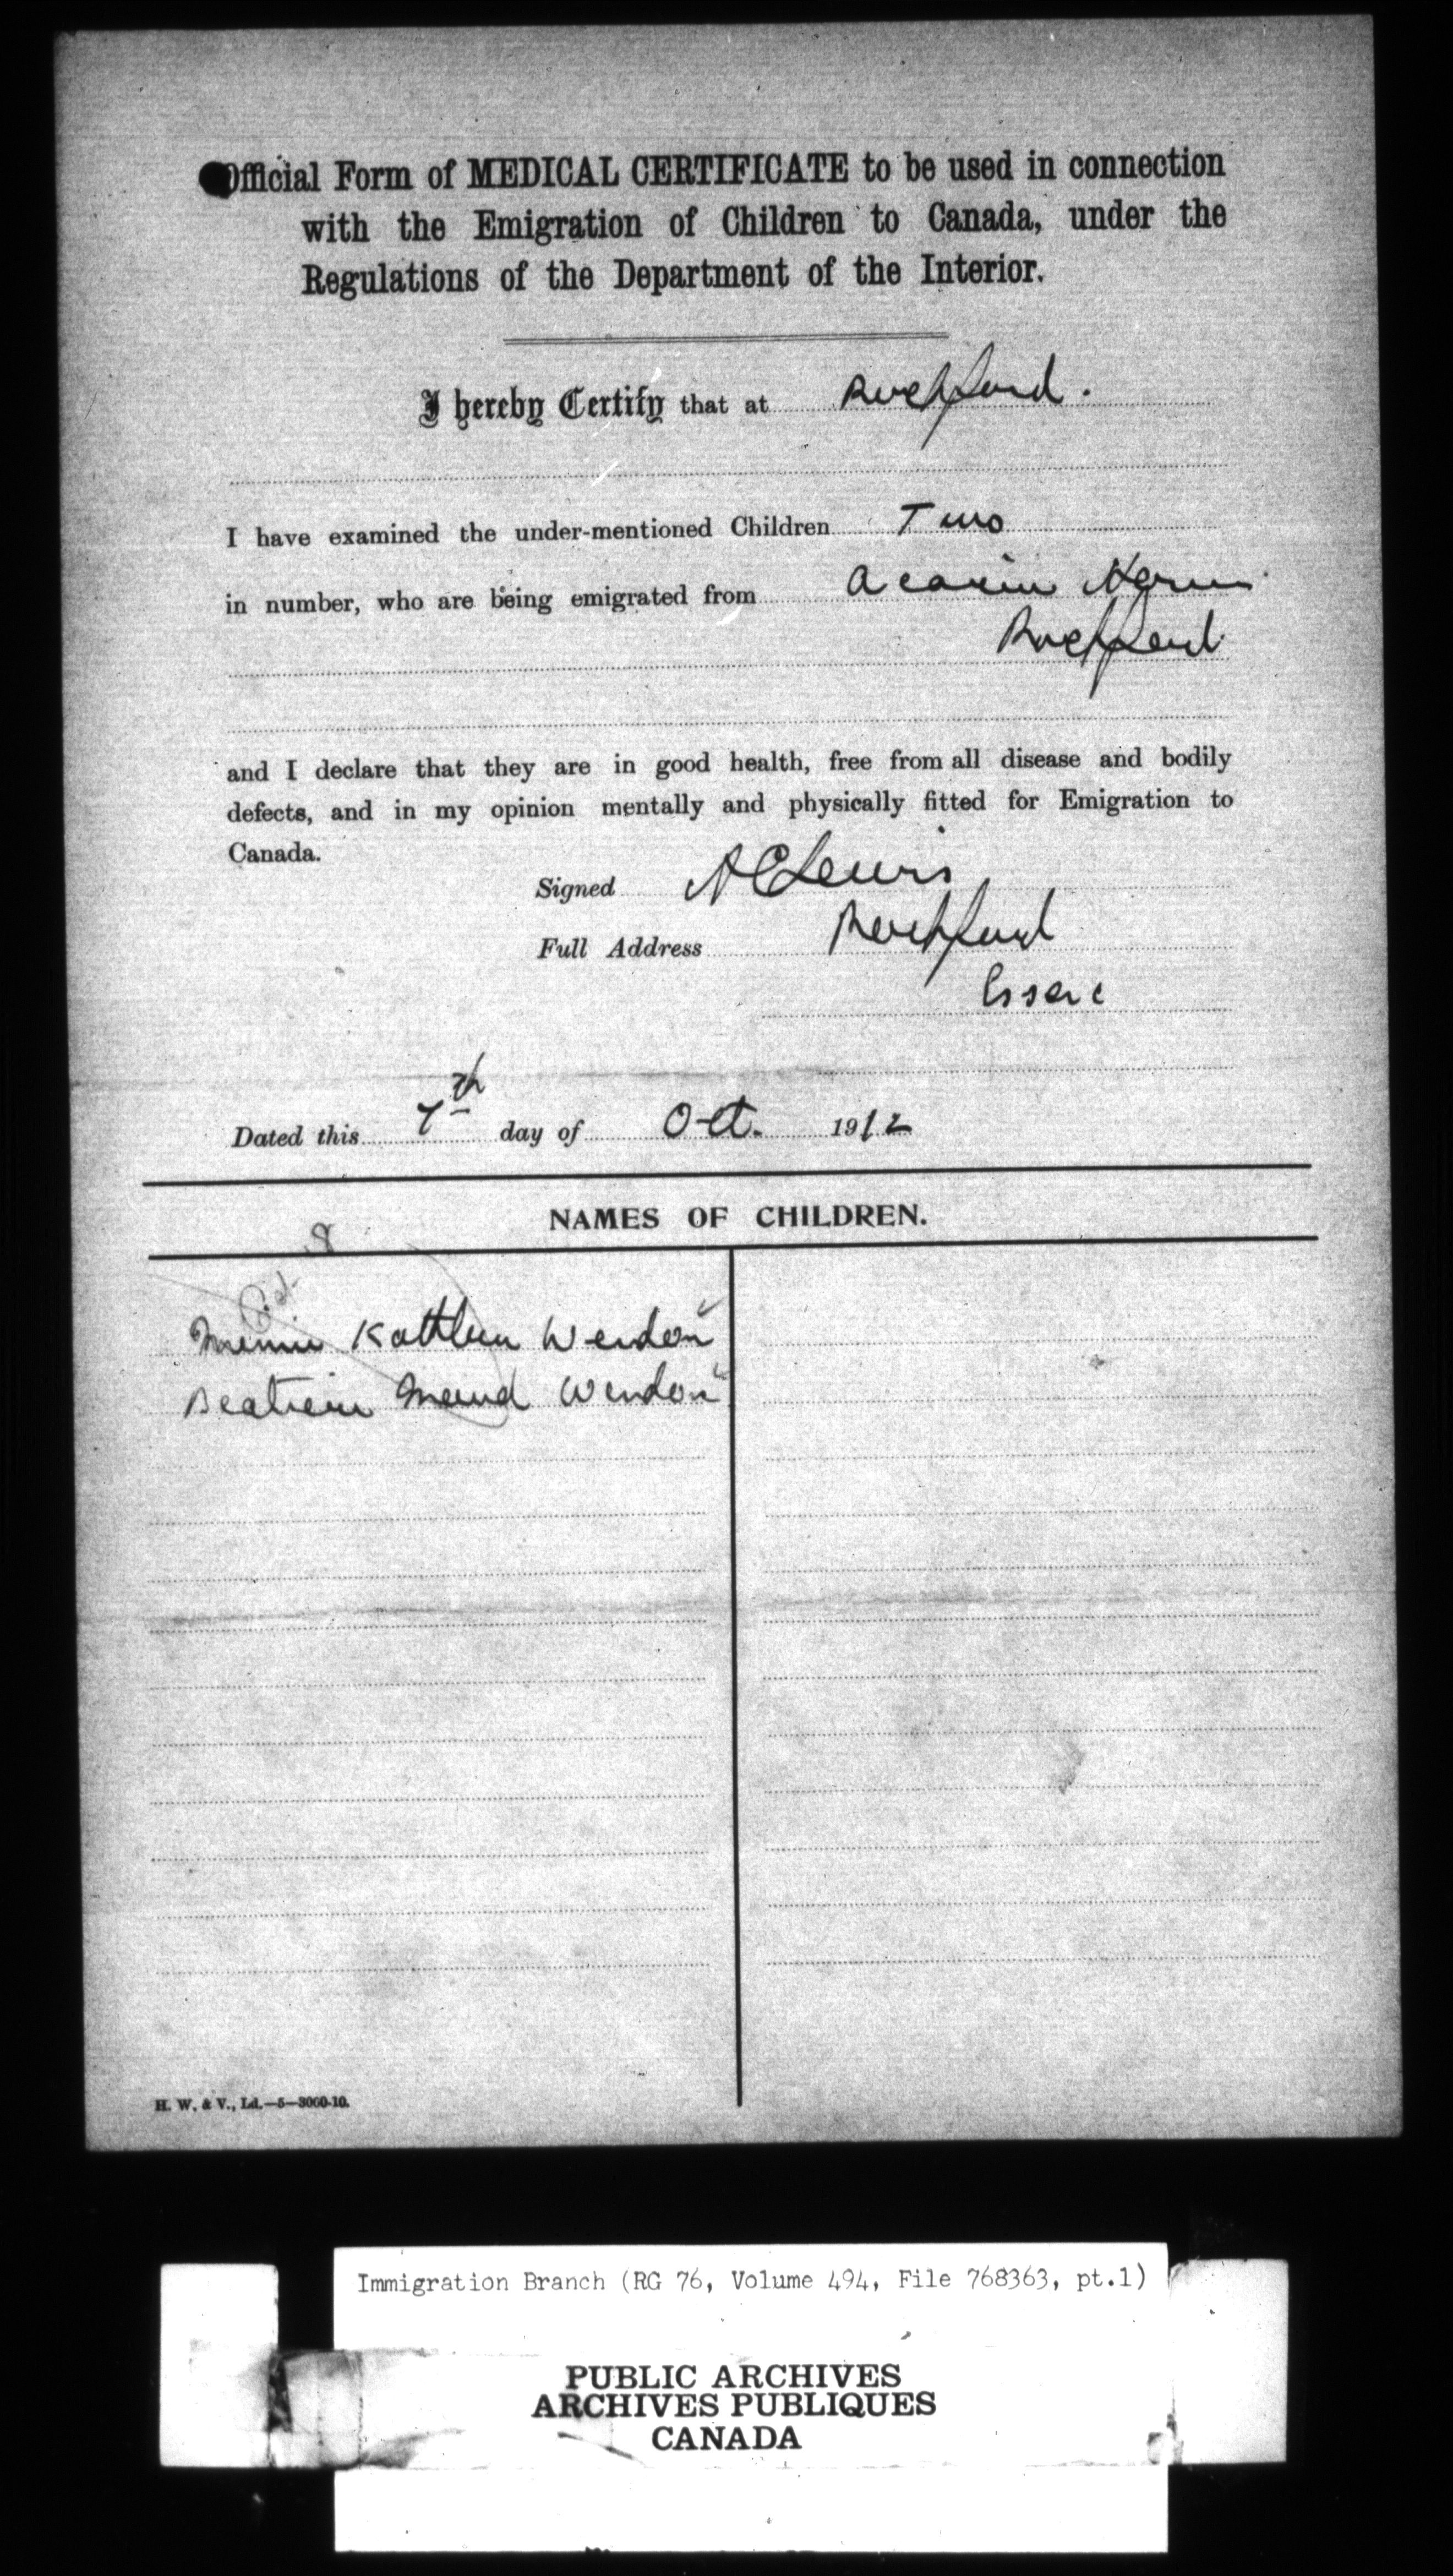 Official Form of MEDICAL CERTIFICATE to be used in connection
with the Emigration of Children to Canada, under the
Regulations of the Department of the Interior.
I hereby Certify that at Rochford.
I have examined the under-mentioned Children Two
in number, who are being emigrated from
Rochford
and I declare that they are in good health, free from all disease and bodily
defects, and in my opinion mentally and physically fitted for Emigration to
Canada.
Signed A C Lewis
Full Address Rochford
Essex
Dated this 7th day of Oct. 1912
NAMES OF CHILDREN.
8
Minnie Kathleen Wendon
Beatrice Maud Wendon
H. W. & V., Ld.—5—3060-10.
Immigration Branch (RG 76, Volume 494, File 768363, pt.1)
PUBLIC ARCHIVES
ARCHIVES PUBLIQUES
CANADA